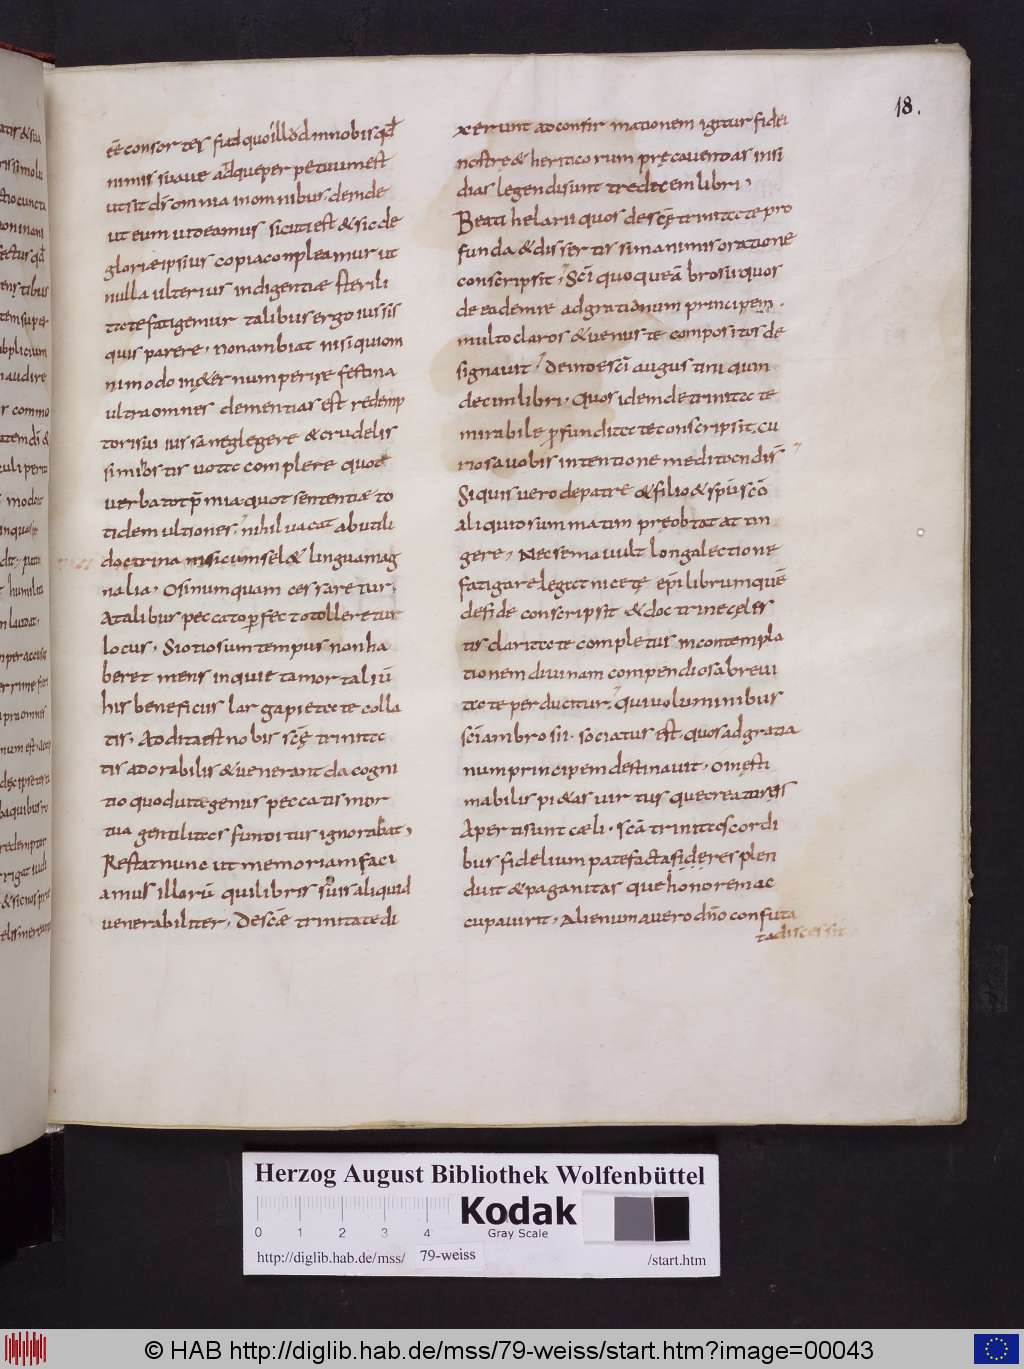 18.
eē consortes sed quo illud in nobis qđ
nimis suave adque perpetuum est
ut sit dī omnia in omnibus, deinde
ut eum videamus sicuti est & sic de
gloriae ipsius copia compleamur ut
nulla ulterius indigentiae sterili
tate fatigemur talibus ergo iussis
quis parere, non ambiat nisi qui om
nimodo in &ernum perire festina
ultra omnes clementias est redemp
toris iussa neglegere & crudelis
simi hostis vota complere quod
verba tot p̄mia quot sententiae to
tidem ultiones, nihil vacat ab utili
doctrina nisi cum sel& lingua mag
nalia, O si numquam cessaretur,
A talibus peccato perfecto tolleretur
locus, Si otiosum tempus non ha
beret mens inquieta mortaliū
his beneficiis largapietate colla
tis, Addita est nobis scę trinita
tis adorabilis & veneranda cogni
tio quod vitae genus peccatis mor
tua gentilitas funditus ignorabat,
Restat nunc ut memoriam faci
amus illorū qui libris suis aliquid
venerabiliter, De scae trinitate di
xerunt ad confirmationem igitur fidei
nostre & hereticorum precavendas insi
dias legendi sunt tredecem libri,
Beati helarii quos de scę trinitate pro
funda & dissertissima nimis oratione
conscripsit, Sci quoque ambrosii quos
de eadem re ad gratianum principem.
multo claros & venuste compositos de
signavit, deinde sci augustini quin
decim libri, Quos idem de trinitate
mirabile profunditate conscripsit, cu
riosa vobis intentione meditandi s̄
Si quis vero de patre & filio & spū scō
aliquid summatim preobtat attin
gere, nec se mavult longa lectione
fatigare legat nicetę epi librum quē
de fide conscripsit & doctrine cęles
tis claritate completus in contempla
tionem divinam compendiosa brevi
tate perducitur, qui voluminibus
sci ambrosii. sociatus est, quos ad gratia
num principem destinavit, O inesti
mabilis pi&as virtus que creatoris
Aperti sunt caeli. scā trinitas cordi
bus fidelium patefacta fide resplen
duit & paganitas que honorem ac
cupavirt, Alienum a vero dn̄o confuta
ta discessit
Herzog August Bibliothek Wolfenbüttel
0 1 2 3 4
Kodak
Gray Scale
http://diglib.hab.de/mss/ 79-weiss /start.htm
© HAB http://diglib.hab.de/mss/79-weiss/start.htm?image=00043